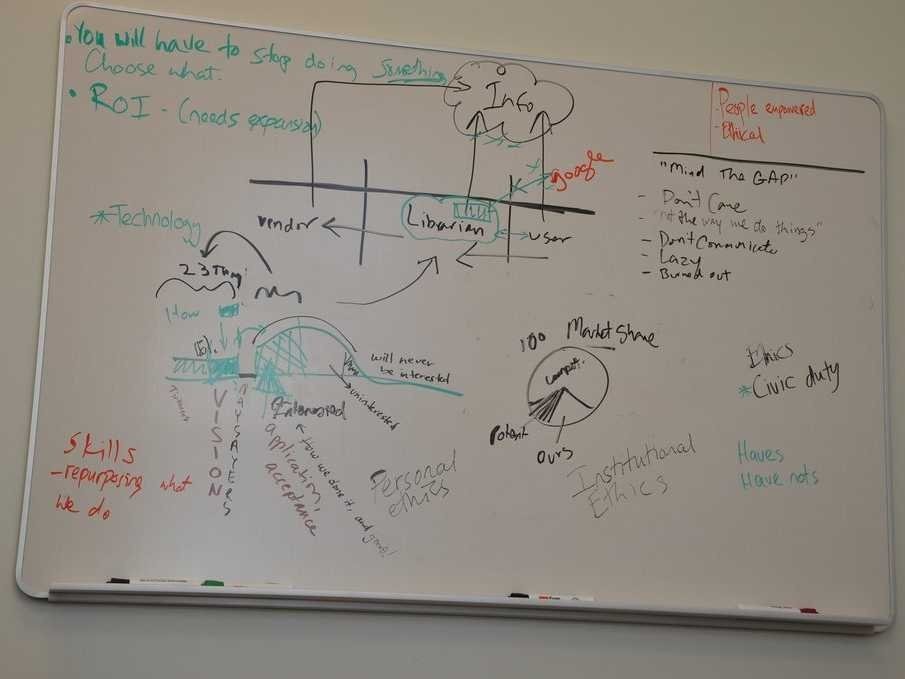 • You will have to stop doing something
Choose what.
• ROI - (needs expansion)
Info
google
- People empowered
- Ethical
"Mind The GAP"
- Don't Care
- "not the way we do things"
- Don't Communicate
- Lazy
- Burned out
*Technology
vendor
Librarian
user
23 Things
How
15%
will never
be interested
uninterested
VISION
NAYSAYERS
Interested
application,
acceptance
How we done it, and
100 Market Share
compet.
Potent
ours
Ethics
*Civic duty
Haves
Have nots
Personal
ethics
Institutional
Ethics
Skills
- repurposing what
we do